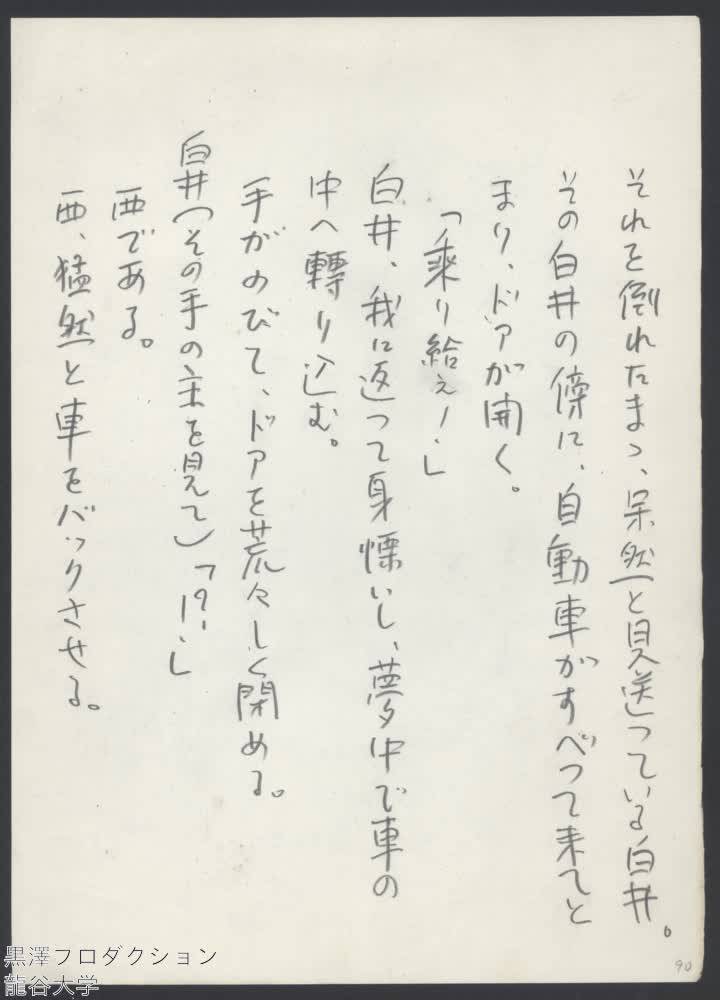 それを倒れたまゝ、呆然と見送つている白井。
その白井の傍に、自動車がすべつて来てと
まり、ドアが開く。
「乗り給え！」
白井、我に返つて身慄いし、夢中で車の
中へ轉り込む。
手がのびて、ドアを荒々しく閉める。
白井（その手の主を見て）「！？」
西である。
西、猛然と車をバックさせる。
90
黒澤プロダクション
龍谷大学